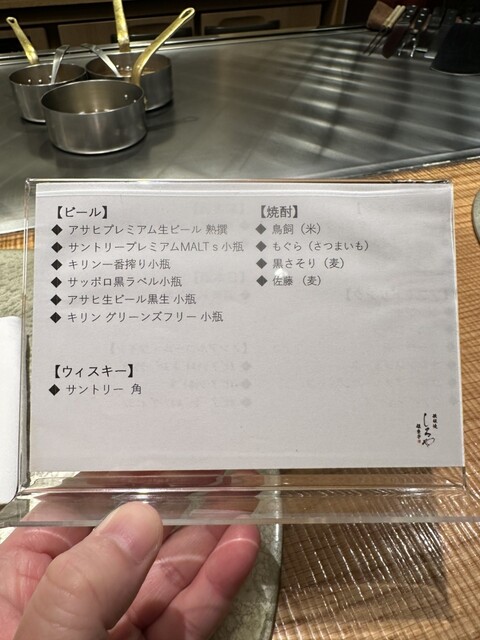 【ビール】
◆ アサヒプレミアム生ビール 熟撰
◆ サントリープレミアムMALTs 小瓶
◆ キリン一番搾り小瓶
◆ サッポロ黒ラベル小瓶
◆ アサヒ生ビール黒生 小瓶
◆ キリン グリーンズフリー 小瓶
【ウィスキー】
◆ サントリー 角
【焼酎】
◆ 鳥飼（米）
◆ もぐら（さつまいも）
◆ 黒さそり（麦）
◆ 佐藤（麦）
鉄板焼
しろや